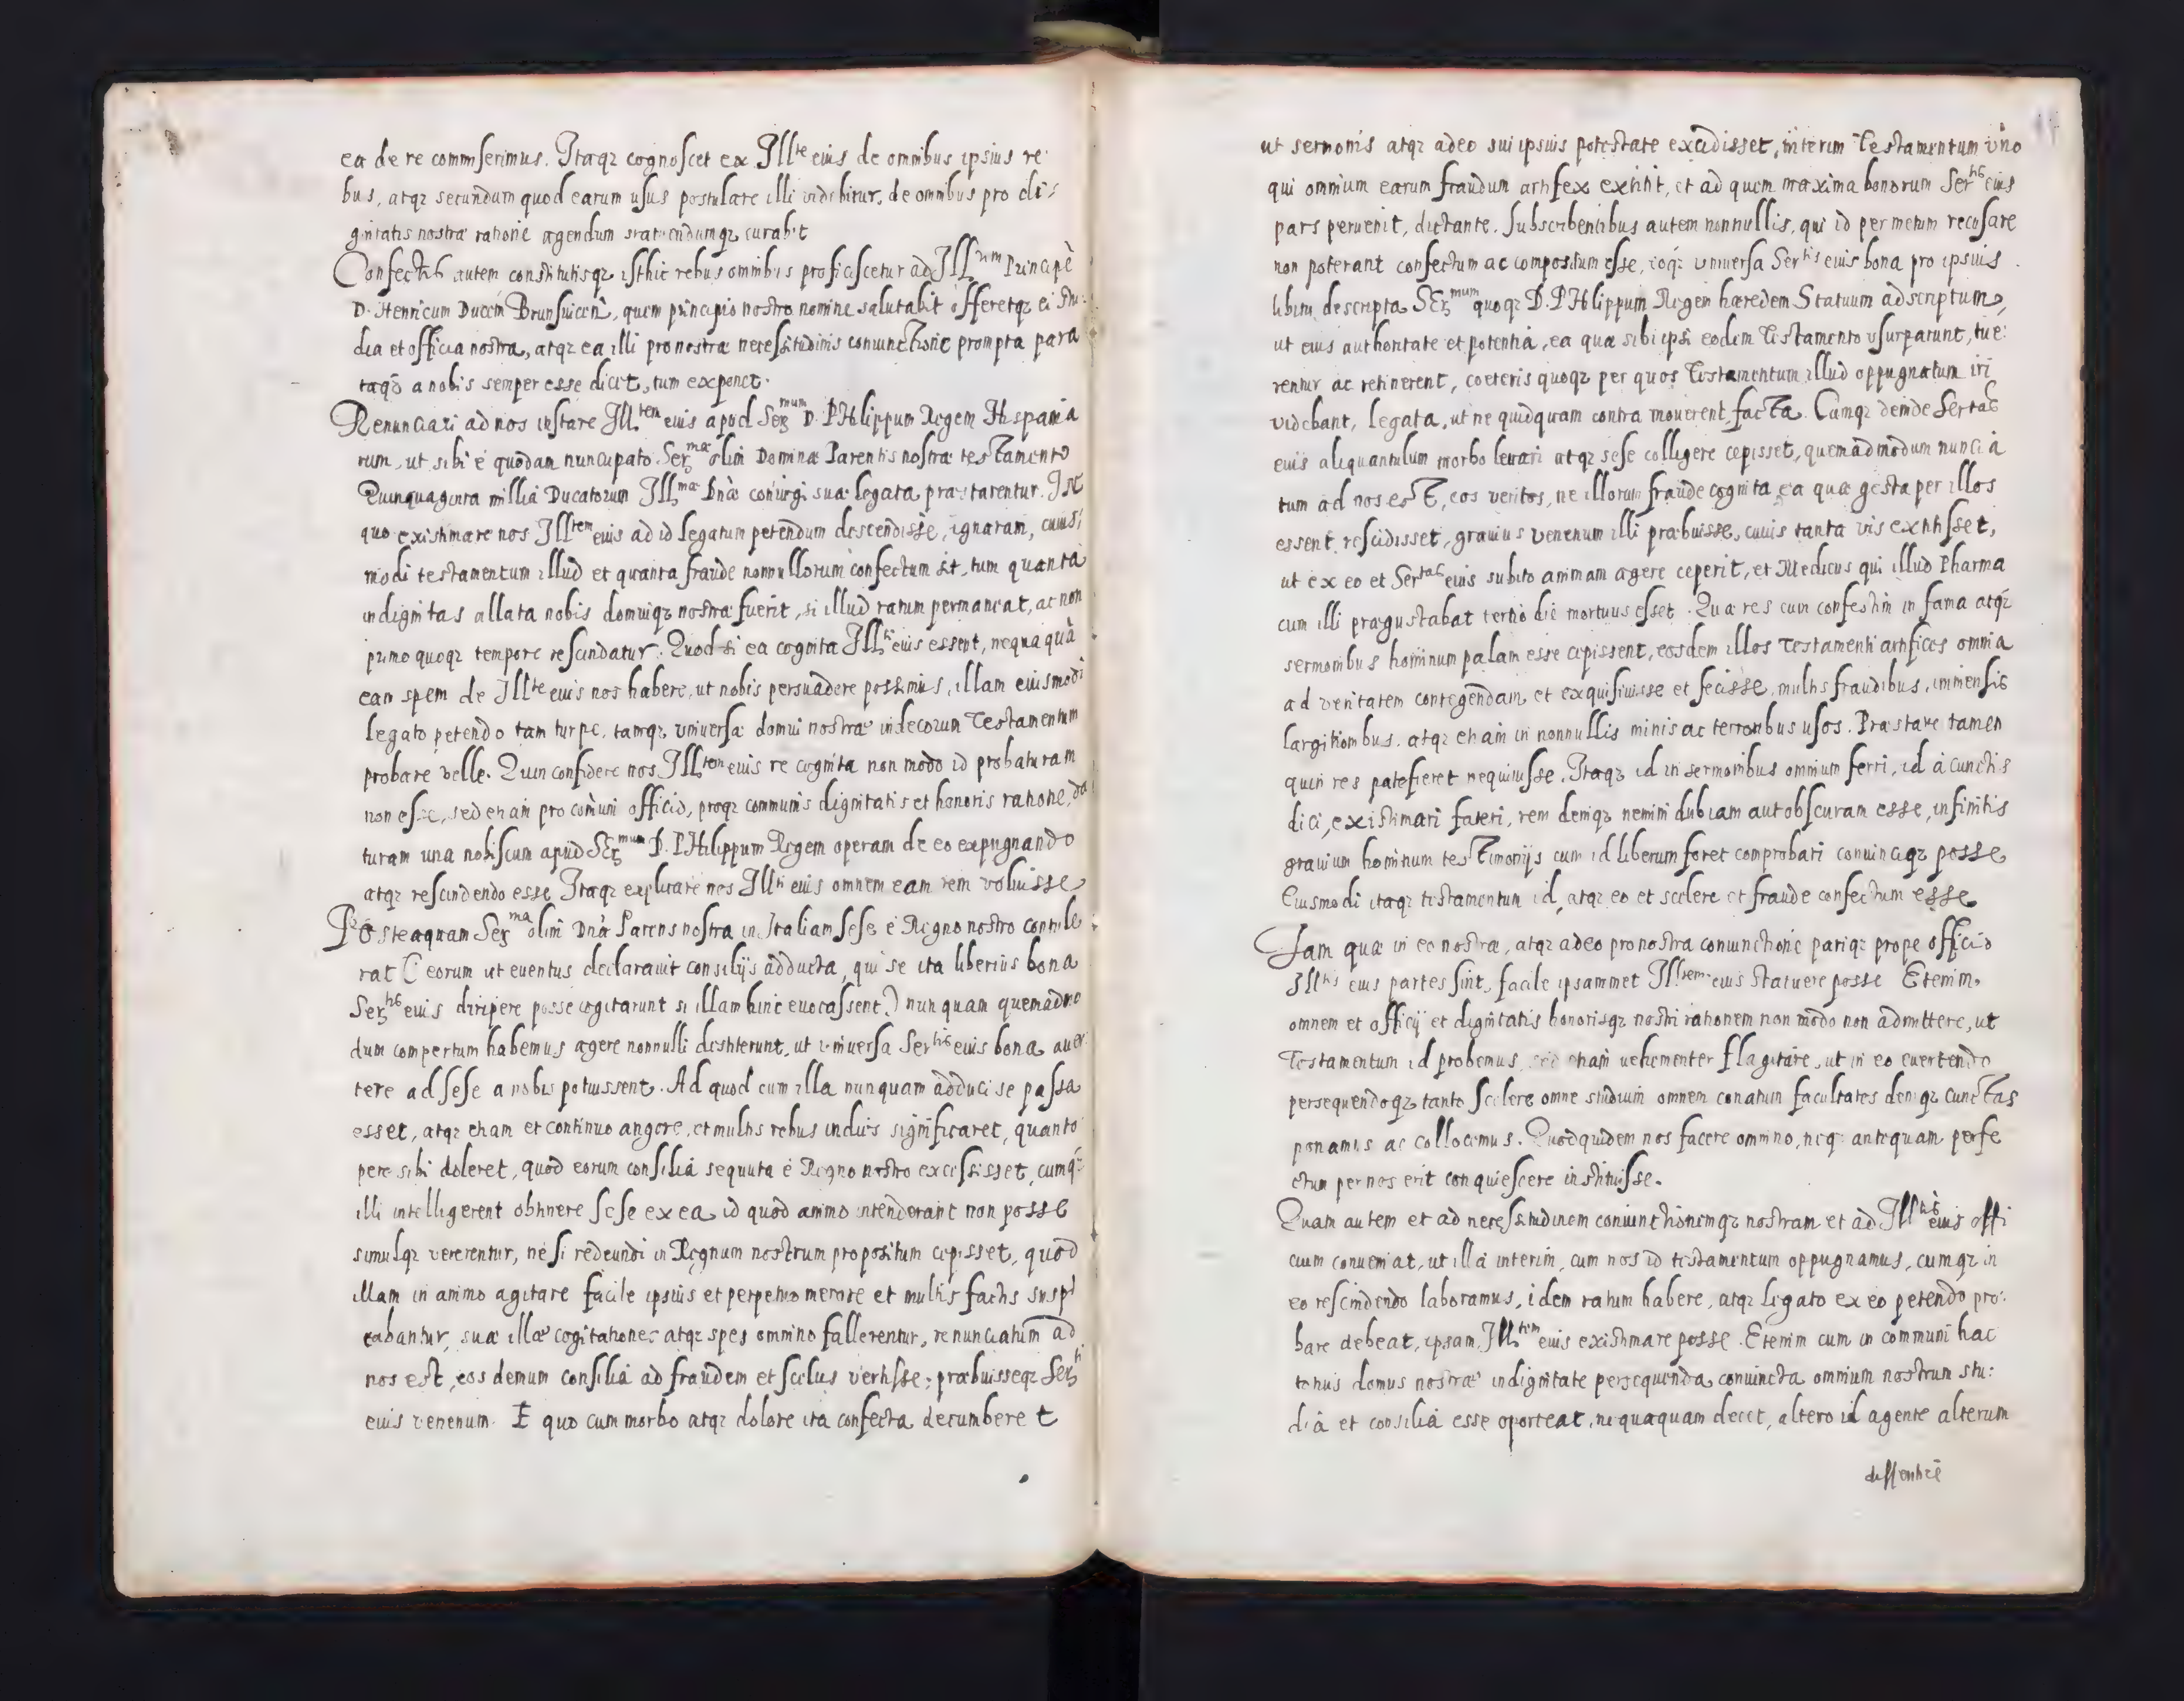 ea de re commiserimus. Itaqꝫ cognoscet ex Ill^te eius de omnibus ipsius re
bus, atqꝫ secundum quod earum usus postulare illi videbitur, de omnibus pro di:
gnitatis nostræ ratione agendum statuendumqꝫ curabit
Confectis autem constitutisqꝫ isthic rebus omnibus proficiscetur ad Ill^um Principē
D. Henricum Ducem Brunsuicen̄, quem principio nostro nomine salutabit offeretqꝫ ei stu:
dia et officia nostra, atqꝫ ea illi pro nostræ necessitudinis coniunctione prompta para
taqꝫ a nobis semper esse dicet, tum exponet.
Renunciari ad nos instare Ill^tem eius apud Ser^mum D. PHilippum Regem Hispania
rum, ut sibi é quodam nuncupato Ser^mæ olim Dominæ Parentis nostræ testamento
Quinquaginta millia Ducatorum Ill^mæ Dnæ coniugi suæ legata præstarentur. Ist
quo existimare nos Ill^tem eius ad id legatum petendum descendisse, ignaram, cuius
modi testamentum illud et quanta fraude nonnullorum confectum sit, tum quanta
indignitas allata nobis domuiqꝫ nostræ fuerit, si illud ratum permaneat, ac non
primo quoqꝫ tempore rescindatur. Quod si ea cognita Ill^ti eius essent, nequaquā
eam spem de Ill^te eius nos habere, ut nobis persuadere possimus, illam eiusmodi
legato petendo tam turpe, tamqꝫ vniuersæ domui nostræ indecorum Testamentum
probare velle. Quin confidere nos Ill^tem eius re cognita non modo id probaturam
non esse, sed etiam pro comuni officio, proqꝫ communis dignitatis et honoris ratione, da
turam una nobiscum apud Ser^mum D. PHilippum Regem operam de eo expugnando
atqꝫ rescindendo esse Itaqꝫ explicare nos Ill^ti eius omnem eam rem voluisse
Posteaquam Ser^ma olim Dna Parens nostra in Italiam sese é Regno nostro contule
rat (eorum ut euentus declarauit consilijs adducta, qui se ita liberius bona
Ser^tis eius diripere posse cogitarunt si illam hinc euocassent) nunquam quemadmo
dum compertum habemus agere nonnulli destiterunt, ut vniuersa Ser^tis eius bona auer
tere ad sese a nobis potuissent. Ad quod cum illa nunquam adduci se passa
esset, atqꝫ etiam et continuo angore, et multis rebus indies significaret, quanto
pere sibi doleret, quod eorum consilia sequuta é Regno nostro excessisset, cumqꝫ
illi intelligerent obtinere sese ex ea id quod animo intenderant non posse
simulqꝫ vererentur, ne si redeundi in Regnum nostrum propositum cepisset, quod
illam in animo agitare facile ipsius et perpetuo merore et multis factis suspi
cabantur, suæ illæ cogitationes atqꝫ spes omnino fallerentur, renunciatum ad
nos est, eos demum consilia ad fraudem et scelus vertisse; præbuisseqꝫ Ser^ti
eius venenum. E quo cum morbo atqꝫ dolore ita confecta decumberet
ut sermonis atqꝫ adeo sui ipsius potestate excidisset, interim Testamentum vno
qui omnium earum fraudum artifex extitit, et ad quem maxima bonorum Ser^tis eius
pars peruenit, dictante. Subscribentibus autem nonnullis, qui id per metum recusare
non poterant confectum ac compositum esse, eoqꝫ vniuersa Ser^tis eius bona pro ipsius
libitu descripta Ser^mum quoqꝫ D. PHilippum Regem hæredem Statuum adscriptum,
ut eius authoritate et potentia, ea quæ sibi ipsi eodem Testamento vsurparunt, tue:
rentur ac retinerent, coeteris quoqꝫ per quos Testamentum illud oppugnatum iri
videbant, legata, ut ne quidquam contra mouerent, facta. Cumqꝫ deinde Ser^tas
eius aliquantulum morbo leuari atqꝫ sese colligere cepisset, quemadmodum nuncia
tum ad nos est, eos veritos, ne illorum fraude cognita, ea quæ gesta per illos
essent rescidisset, grauius venenum illi præbuisse, cuius tanta vis extitisset,
ut ex eo et Ser^tas eius subito animam agere ceperit, et Medicus qui illud Pharma
cum illi prægustabat tertio die mortuus esset. Quæ res cum confestim in fama atqꝫ
sermonibus hominum palam esse cepissent, eosdem illos Testamenti artifices omnia
ad veritatem contegendam et exquisiuisse et fecisse, multis fraudibus, immensis
largitionibus, atqꝫ etiam in nonnullis minis ac terroribus usos. Præstare tamen
quin res patefieret nequiuisse. Itaqꝫ id in sermonibus omnium ferri, id à cunctis
dici, existimari fateri, rem deniqꝫ nemini dubiam aut obscuram esse, infinitis
grauium hominum testimonijs cum id liberum foret comprobari conuinciqꝫ posse
Eiusmodi itaqꝫ testamentum id, atqꝫ eo et scelere et fraude confectum esse
Iam quæ in eo nostræ, atqꝫ adeo pro nostra coniunctione pariqꝫ prope officio
Ill^tis eius partes sint, facile ipsammet Ill^tem eius statuere posse Etenim
omnem et officij et dignitatis honorisqꝫ nostri rationem non modo non admittere, ut
Testamentum id probemus, sed etiam uehementer flagitare, ut in eo euertendo
persequendoqꝫ tanto scelere omne studium omnem conatum facultates deniqꝫ cunctas
ponamus ac collocemus. Quod quidem nos facere omnino, neqꝫ antequam perfe
ctum per nos erit conquiescere instituisse.
Quam autem et ad necessitudinem coniunctionemqꝫ nostram et ad Ill^tis eius offi
cium conueniat, ut illa interim, cum nos id testamentum oppugnamus, cumqꝫ in
eo rescindendo laboramus, idem ratum habere, atqꝫ legato ex eo petendo pro:
bare debeat, ipsam Ill^tem eius existimare posse. Etenim cum in communi hac
totius domus nostræ indignitate persequenda coniuncta omnium nostrum stu:
dia et consilia esse oporteat, nequaquam decet, altero id agente alterum
dissentire